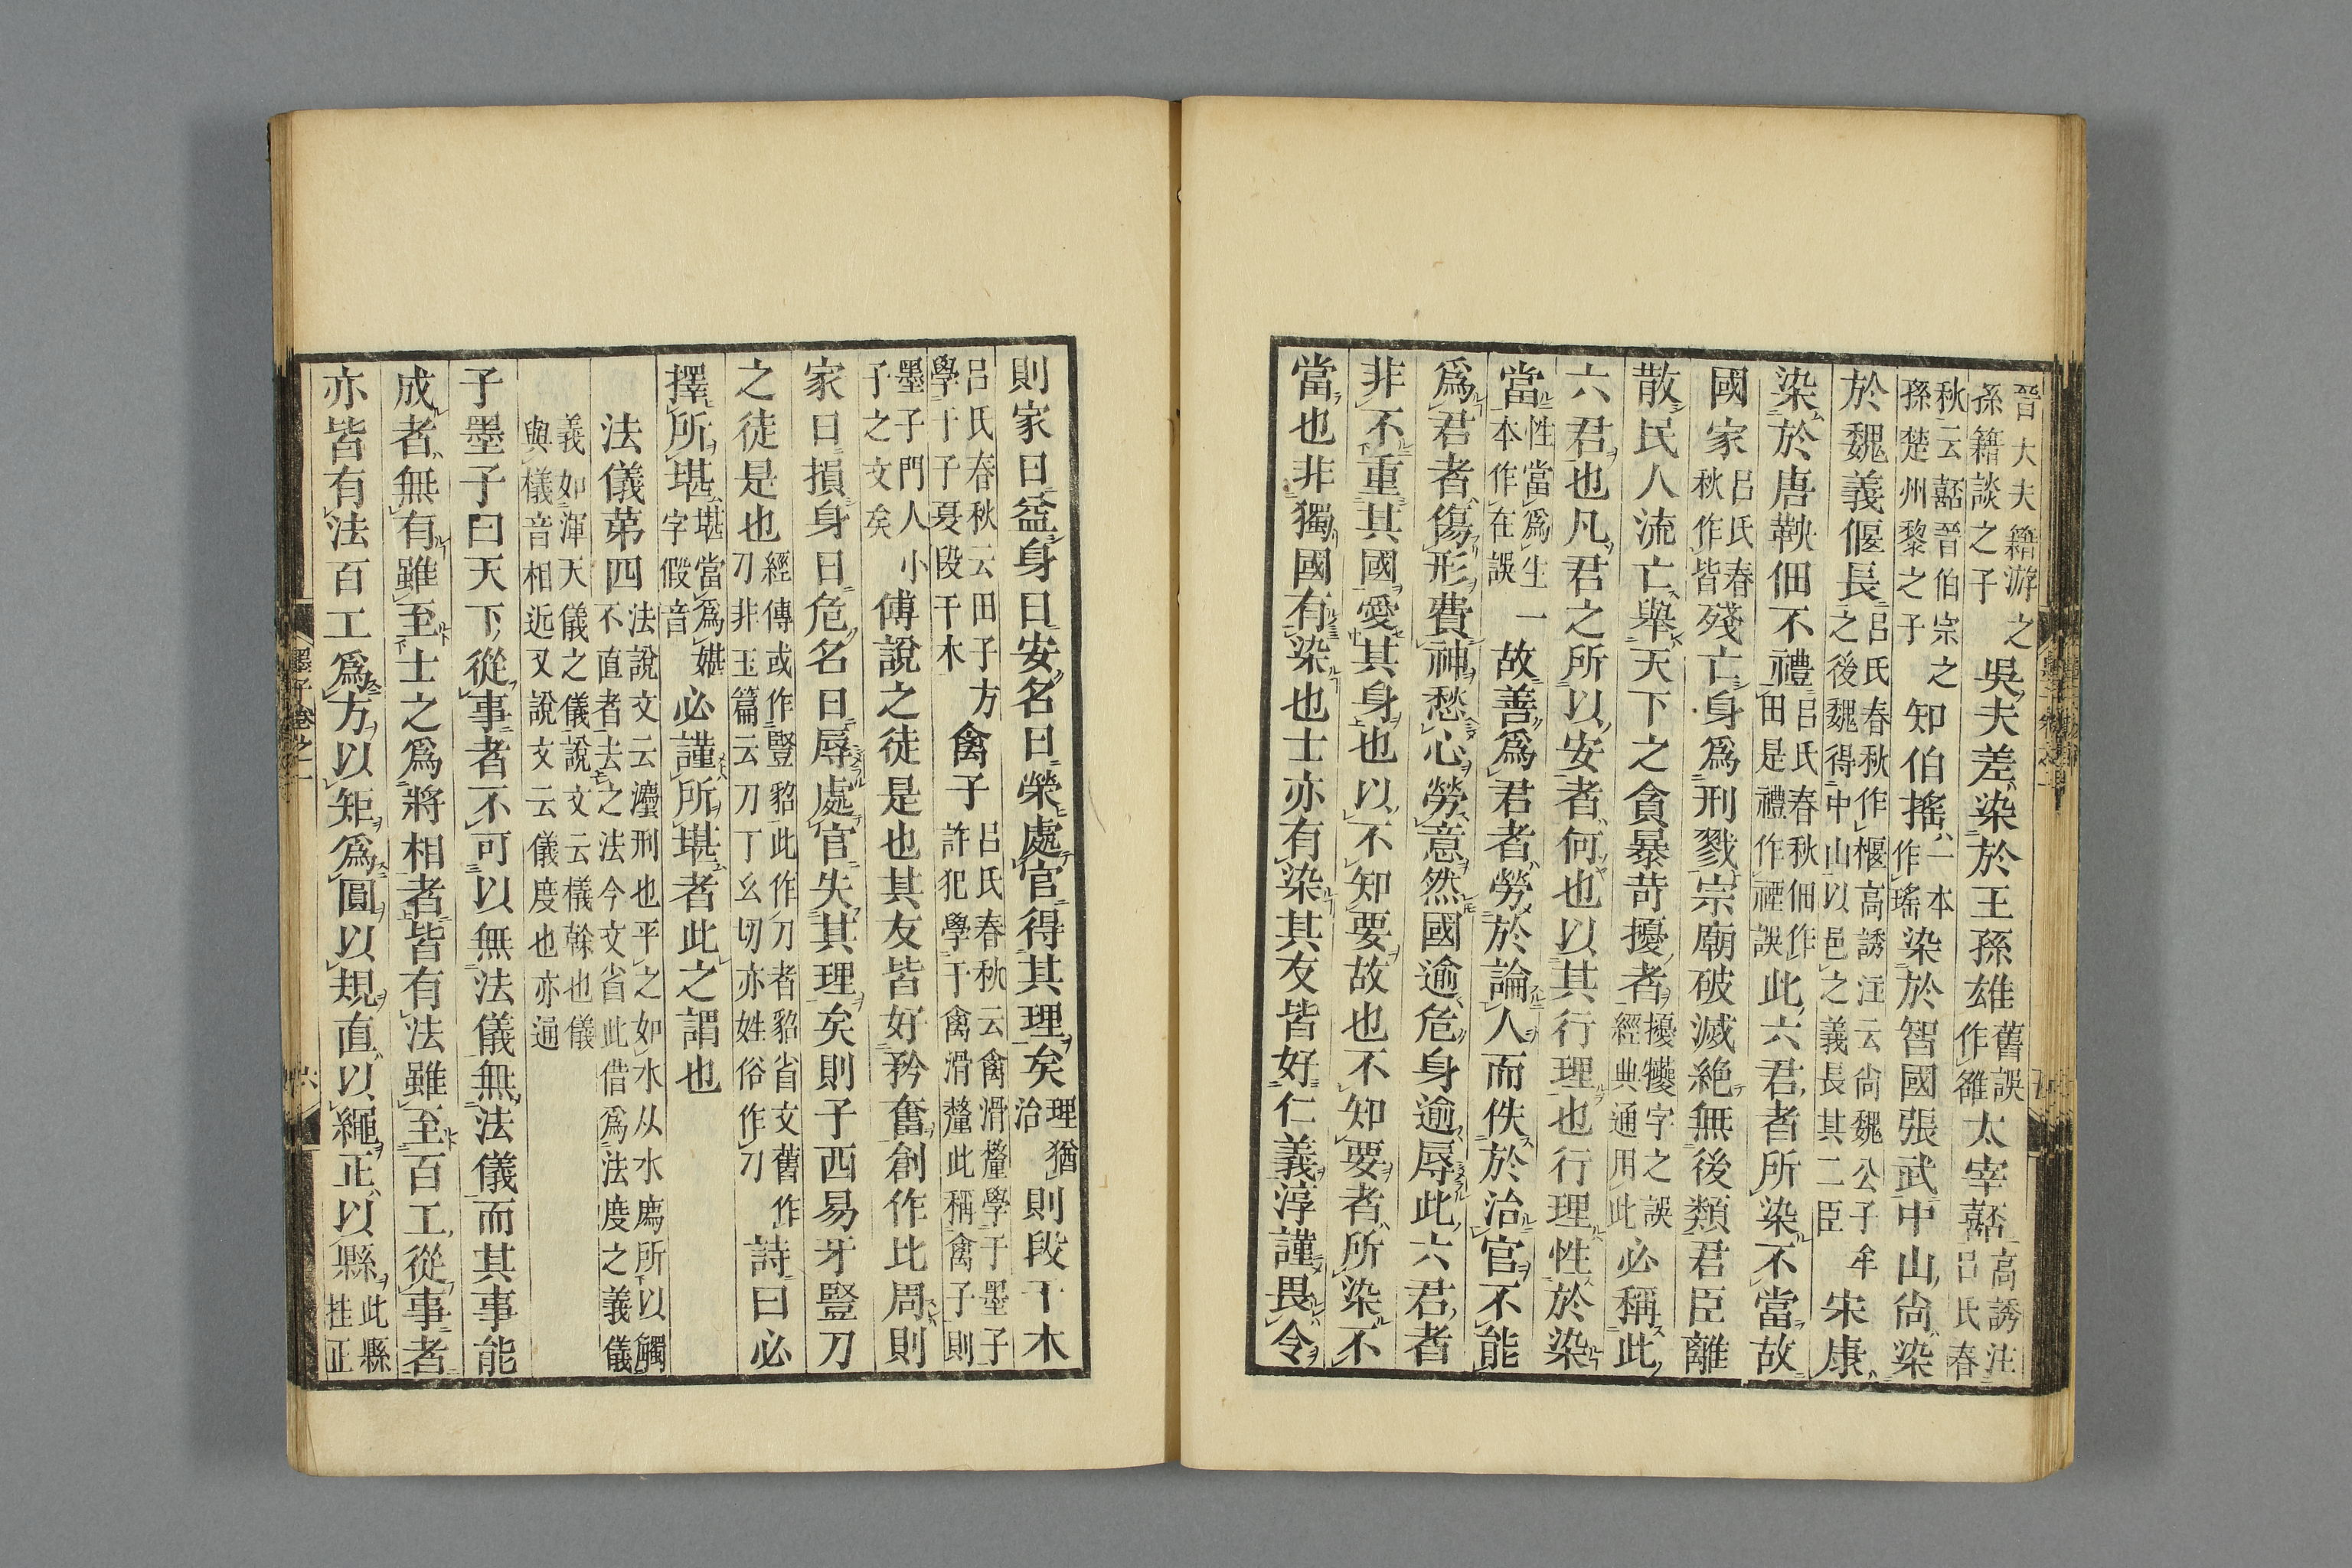 晉大夫籍游之孫籍談之子吳夫差染於王孫雄舊誤作雒太宰嚭高誘注呂氏春
秋云嚭晉伯宗之孫楚州黎之子知伯搖一本作瑤染於智國張武中山尙染
於魏義偃長呂氏春秋作椻高誘注云尙魏公子牟之後魏得中山以邑之義長其二臣宋康
染於唐鞅佃不禮呂氏春秋佃作田是禮作禋誤此六君者所染不當故
國家呂氏春秋作皆殘亡身爲刑戮宗廟破滅絶無後類君臣離
散民人流亡舉天下之貪暴苛擾者擾犪字之誤經典通用此必稱此
六君也凡君之所以安者何也以其行理也行理性於染
當性當爲生一本作在誤故善爲君者勞於論人而佚於治官不能
爲君者傷形費神愁心勞意然國逾危身逾辱此六君者
非不重其國愛其身也以不知要故也不知要者所染不
當也非獨國有染也士亦有染其友皆好仁義淳謹畏令
則家日益身日安名日榮處官得其理矣理猶治則段干木
呂氏春秋云田子方學于子夏段干木禽子呂氏春秋云禽滑𨤲學于墨子許犯學于禽滑𨤲此稱禽子則
墨子門人小子之文矣傅說之徒是也其友皆好矜奮創作比周則
家日損身日危名日辱處官失其理矣則子西易牙豎刀
之徒是也經傳或作豎貂此作刀者貂省文舊作刀非玉篇云刀丁幺切亦姓俗作刁詩曰必
擇所堪堪當爲媅字假音必謹所堪者此之謂也
法儀第四法說文云灋刑也平之如水从水廌所以觸不直者去之法今文省此借爲法度之義儀
義如渾天儀之儀說文云檥榦也儀與檥音相近又說文云儀度也亦通
子墨子曰天下從事者不可以無法儀無法儀而其事能
成者無有雖至士之爲將相者皆有法雖至百工從事者
亦皆有法百工爲方以矩爲圓以規直以繩正以縣此縣挂正
墨子卷之一
六